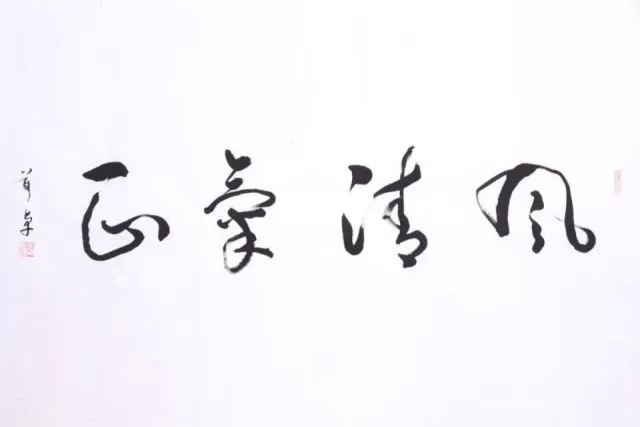 風清氣正